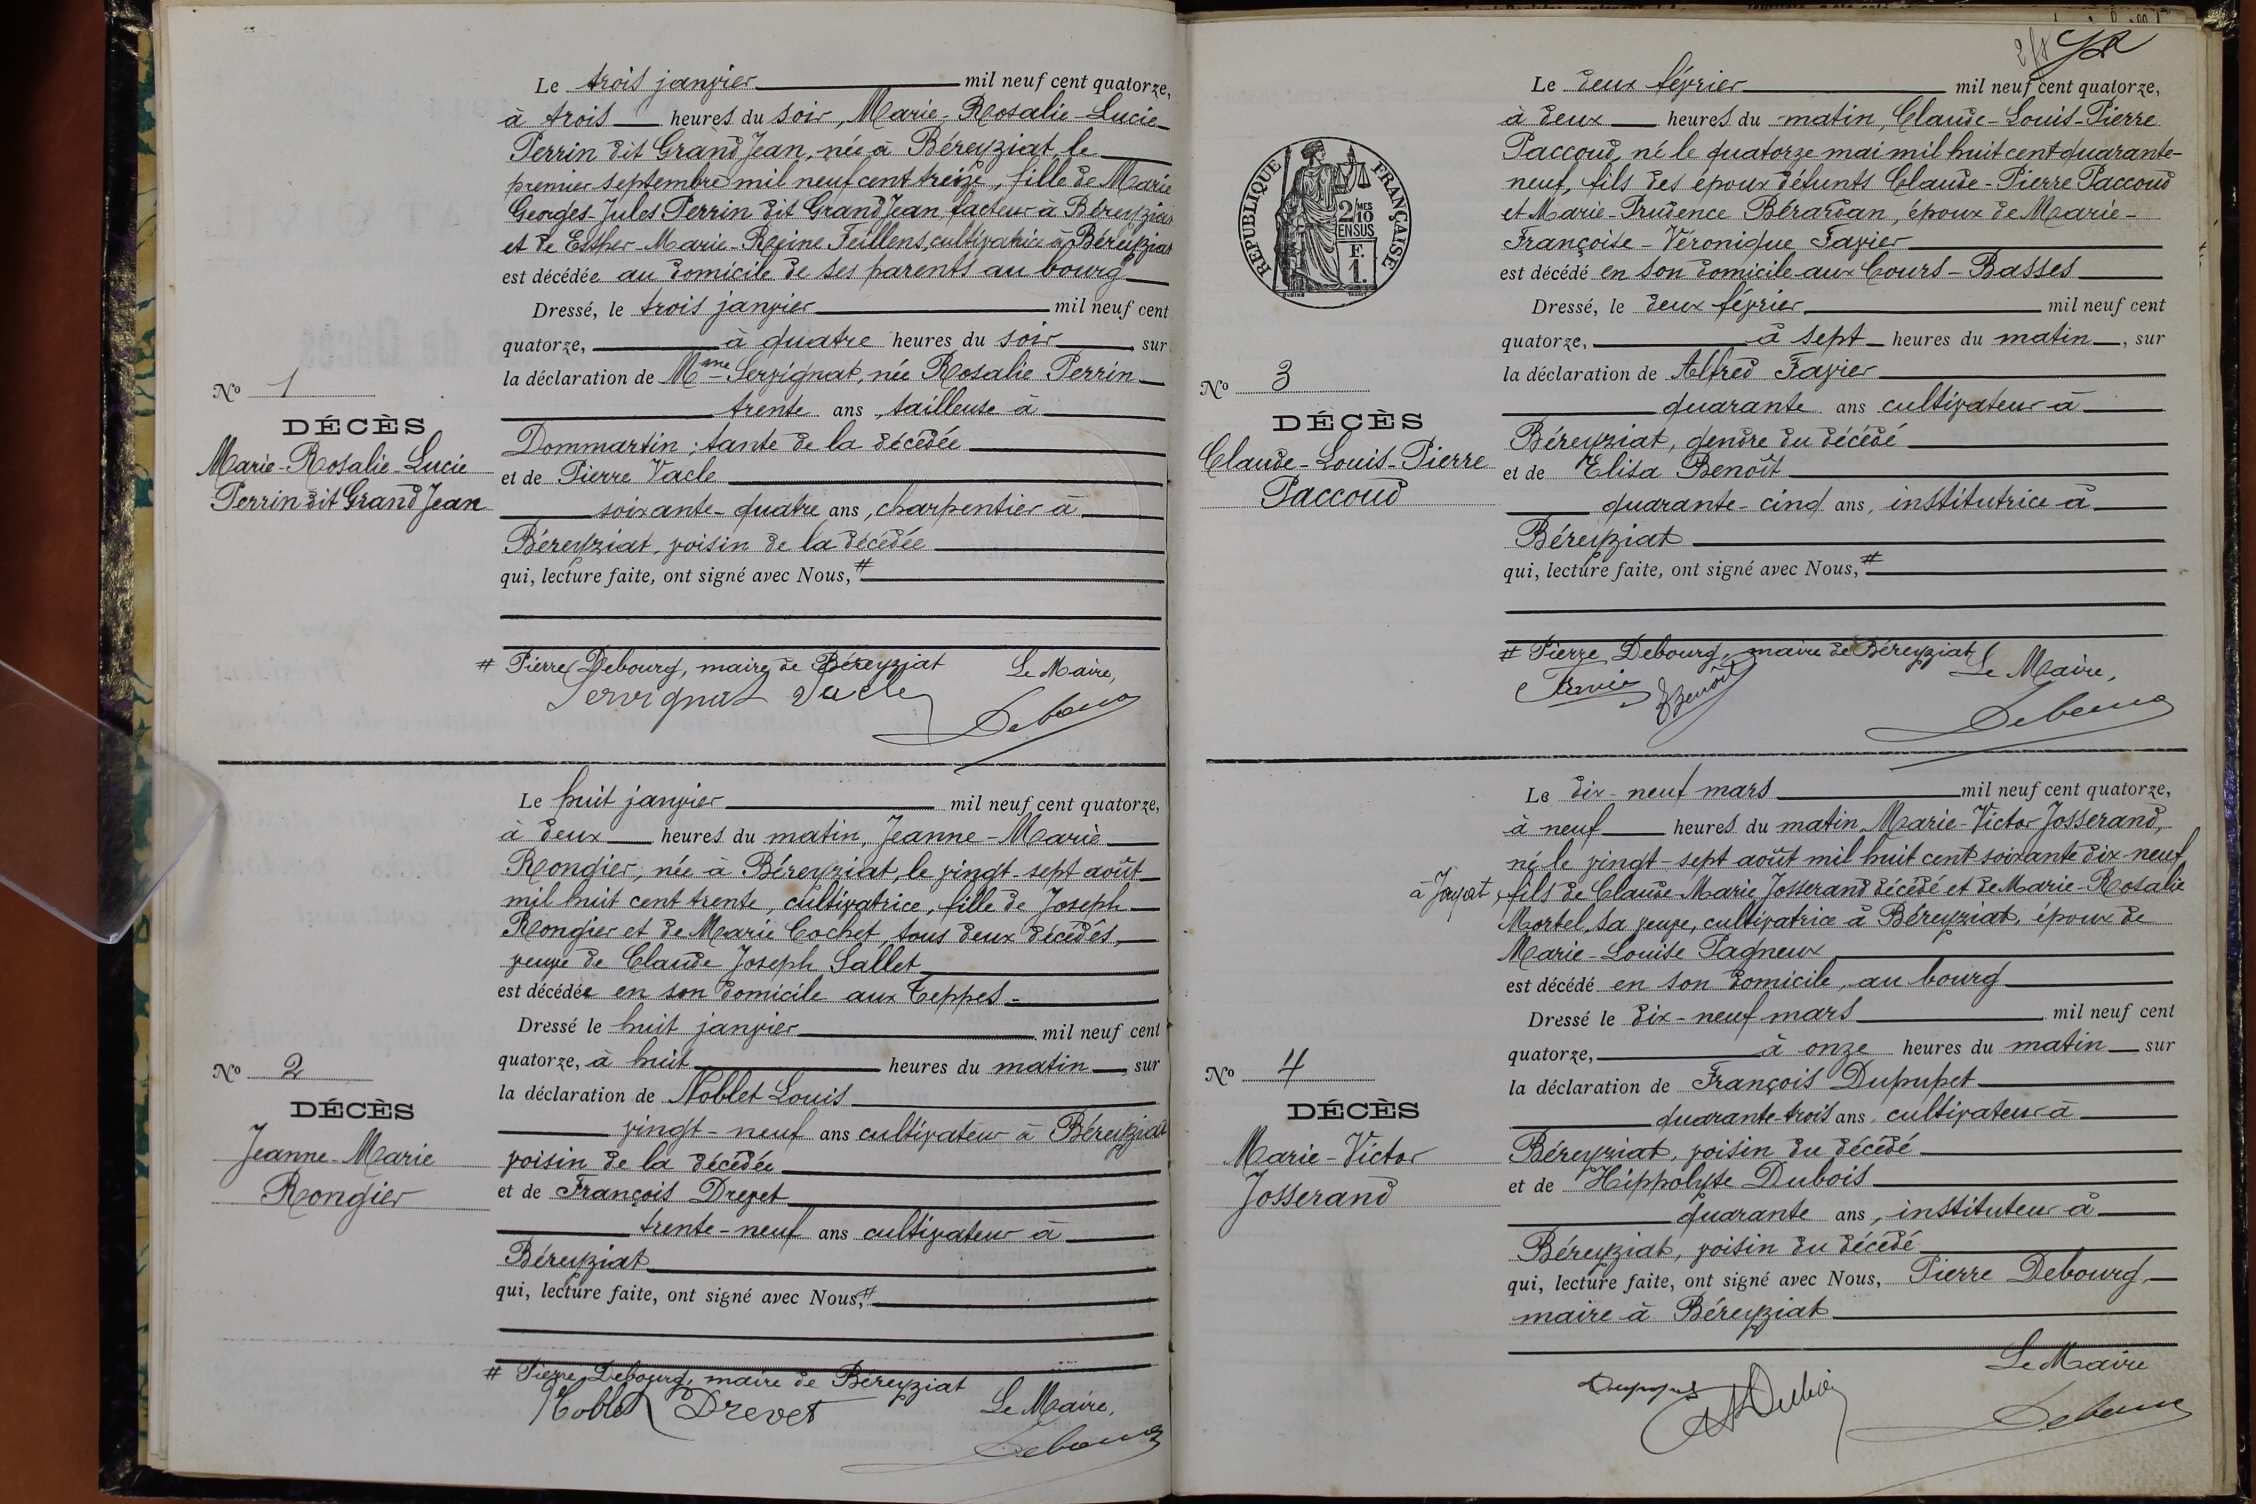 Le trois janvier mil neuf cent quatorze,
à trois heures du soir, Marie-Rosalie-Lucie
Perrin dit GrandJean, née à Béreyziat, le
premier septembre mil neuf cent treize, fille de Marie
Georges-Jules Perrin dit GrandJean facteur à Béreyziat
et de Esther-Marie-Reine Feillens, cultivatrice à Béreyziat
est décédée au domicile de ses parents au bourg
Dressé, le trois janvier mil neuf cent
quatorze, à quatre heures du soir, sur
la déclaration de Mme Servignat, née Rosalie Perrin
trente ans, tailleuse à
Dommartin; tante de la décédée
et de Pierre Vacle
soixante-quatre ans, charpentier à
Béreyziat, voisin de la décédée
qui, lecture faite, ont signé avec Nous,#
# Pierre Debourg, maire de Béreyziat Le Maire,
Servignat Vacle Debourg
No 1
DÉCÈS
Marie-Rosalie-Lucie
Perrin dit Grand Jean
Le huit janvier mil neuf cent quatorze,
à deux heures du matin, Jeanne-Marie
Rongier, née à Béreyziat, le vingt-sept août
mil huit cent trente, cultivatrice, fille de Joseph
Rongier et de Marie Cochet, tous deux décédés,
veuve de Claude Joseph Sallet
est décédée en son domicile aux Teppes
Dressé le huit janvier mil neuf cent
quatorze, à huit heures du matin, sur
la déclaration de Noblet Louis
vingt-neuf ans cultivateur à Béreyziat
voisin de la décédée
et de François Drevet
trente-neuf ans cultivateur à
Béreyziat
qui, lecture faite, ont signé avec Nous,#
# Pierre Debourg, maire de Béreyziat
Noblet Drevet Le Maire,
Debourg
No 2
DÉCÈS
Jeanne-Marie
Rongier
Le deux février mil neuf cent quatorze,
à deux heures du matin, Claude-Louis-Pierre
Paccoud, né le quatorze mai mil huit cent quarante-
neuf, fils des époux défunts Claude-Pierre Paccoud
et Marie-Prudence Bérardan, époux de Marie-
Françoise-Véronique Favier
est décédé en son domicile aux Cours-Basses
Dressé, le deux février mil neuf cent
quatorze, à sept heures du matin, sur
la déclaration de Alfred Favier
quarante ans cultivateur à
Béreyziat, gendre du décédé
et de Elisa Benoît
quarante-cinq ans, institutrice à
Béreyziat
qui, lecture faite, ont signé avec Nous,#
# Pierre Debourg, maire de Béreyziat
Le Maire,
Favier EBenoît Debourg
RÉPUBLIQUE FRANÇAISE
2 MES
10
EN SUS
F.
1.
No 3
DÉCÈS
Claude-Louis-Pierre
Paccoud
Le dix-neuf mars mil neuf cent quatorze,
à neuf heures du matin, Marie-Victor Josserand,
né le vingt-sept août mil huit cent soixante dix-neuf
à Jayat, fils de Claude-Marie Josserand décédé et de Marie-Rosalie
Mortel, sa veuve, cultivatrice à Béreyziat, époux de
Marie-Louise Pagneux
est décédé en son domicile, au bourg
Dressé le dix-neuf mars mil neuf cent
quatorze, à onze heures du matin sur
la déclaration de François Dupupet
quarante-trois ans, cultivateur à
Béreyziat, voisin du décédé
et de Hippolyte Dubois
quarante ans, instituteur à
Béreyziat, voisin du décédé
qui, lecture faite, ont signé avec Nous, Pierre Debourg,
maire à Béreyziat
Le Maire
Dupupet HDubois Debourg
No 4
DÉCÈS
Marie-Victor
Josserand